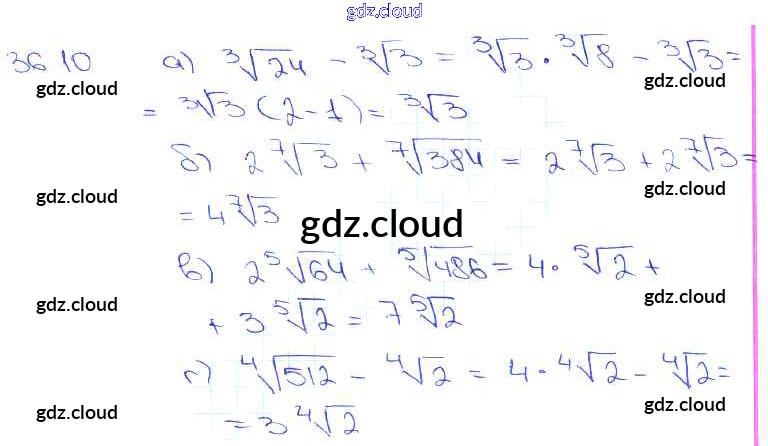 gdz.cloud
36.10 а) ∛24 - ∛3 = ∛3 · ∛8 - ∛3 =
gdz.cloud gdz.cloud
= ∛3 (2-1) = ∛3
б) 2 ⁷√3 + ⁷√384 = 2 ⁷√3 + 2 ⁷√3 =
gdz.cloud gdz.cloud
= 4 ⁷√3
gdz.cloud
в) 2 ⁵√64 + ⁵√486 = 4 · ⁵√2 +
gdz.cloud gdz.cloud
+ 3 ⁵√2 = 7 ⁵√2
г) ⁴√512 - ⁴√2 = 4 · ⁴√2 - ⁴√2 =
gdz.cloud gdz.cloud
= 3 ⁴√2